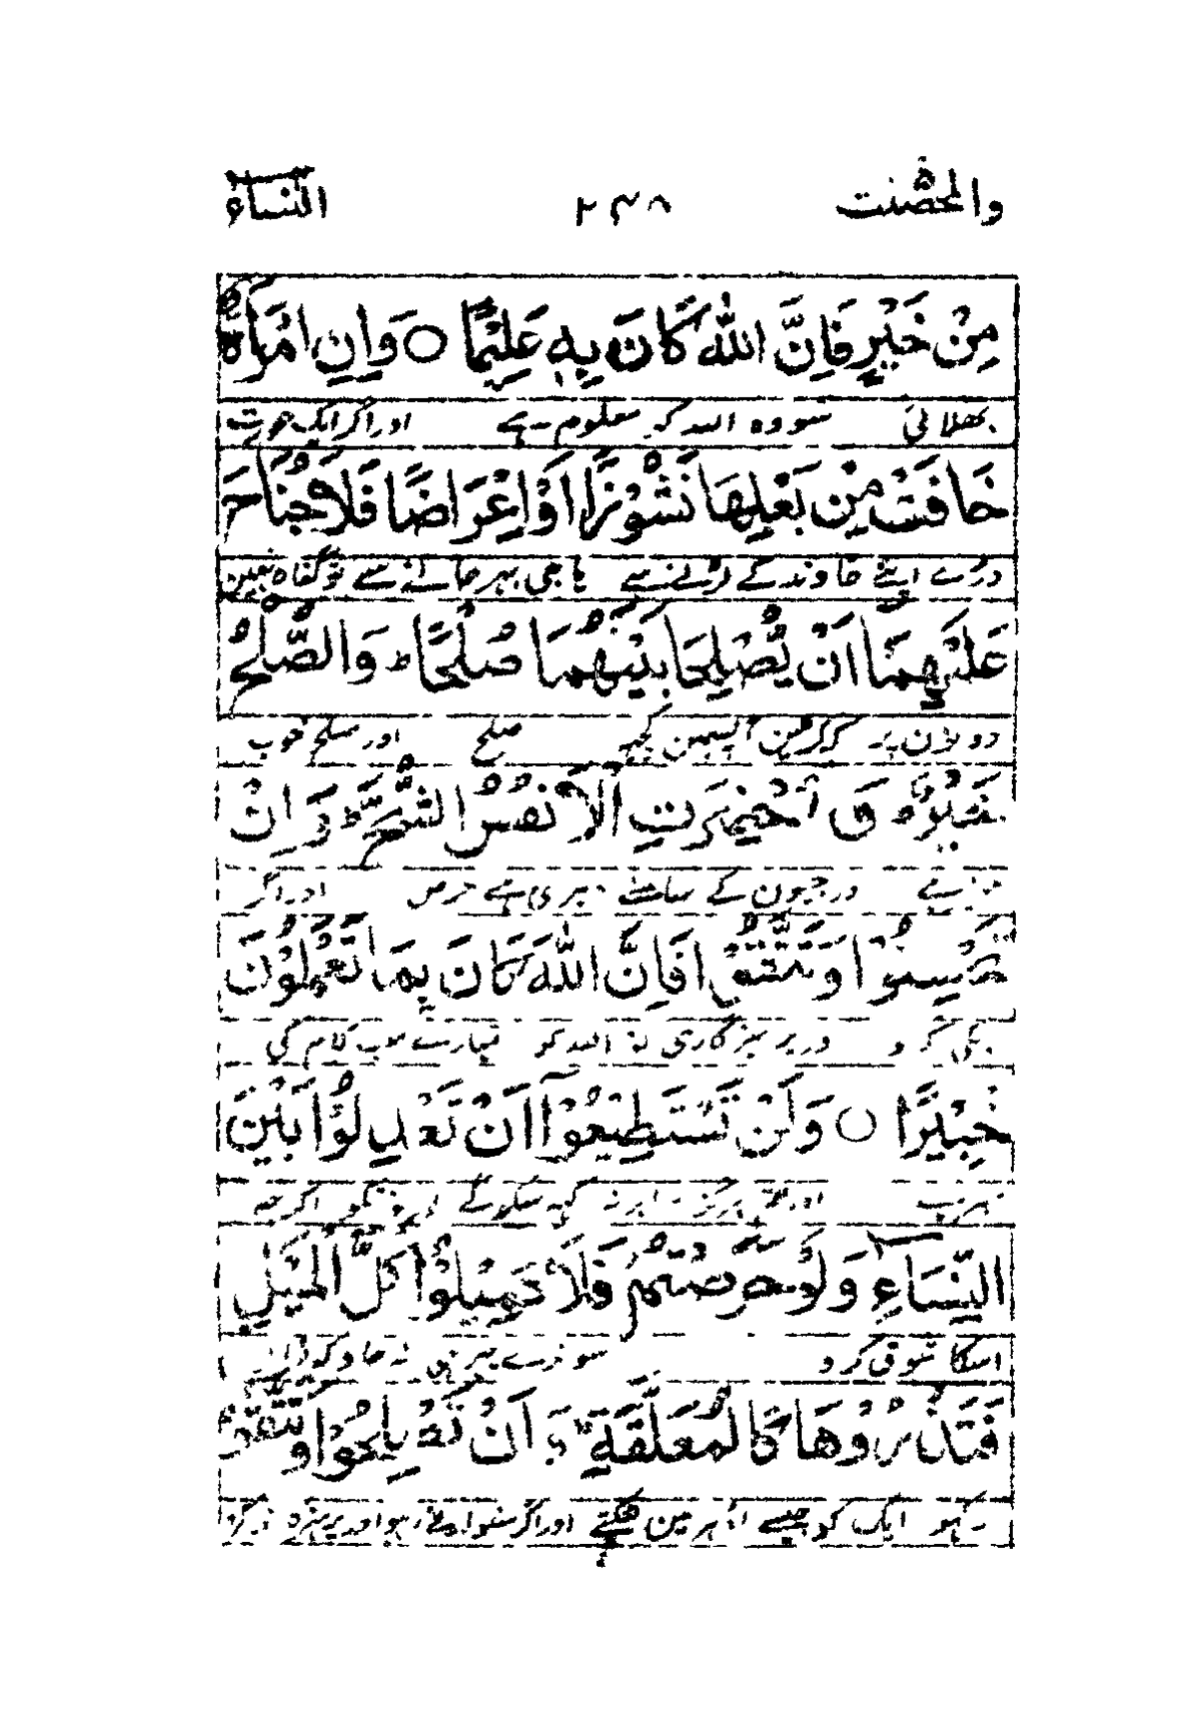 والمحصنت ۲۴۸ النساء
مِنْ خَيْرٍ فَاِنَّ اللّٰهَ كَانَ بِهٖ عَلِيْمًا ○ وَاِنِ امْرَاَةٌ
بھلائی سو وہ اللہ کو معلوم ہے اور اگر ایک عورت
خَافَتْ مِنْۢ بَعْلِهَا نُشُوْزًا اَوْ اِعْرَاضًا فَلَا جُنَاحَ
ڈرے اپنے خاوند کے لڑنے سے یا جی پھر جانے سے تو گناہ نہین
عَلَيْهِمَآ اَنْ يُّصْلِحَا بَيْنَهُمَا صُلْحًا ؕ وَالصُّلْحُ
دونون پر کہ کرلین آپسمین کچھ صلح اور صلح خوب
خَيْرٌ ؕ وَ اُحْضِرَتِ الْاَنْفُسُ الشُّحَّ ؕ وَ اِنْ
چیز ہے اور جیون کے سامنے دھری ہے حرص اور اگر
تُحْسِنُوْا وَتَتَّقُوْا فَاِنَّ اللّٰهَ كَانَ بِمَا تَعْمَلُوْنَ
نیکی کرو اور پرہیزگاری تو اللہ کو تمہارے سب کام کی
خَبِيْرًا ○ وَلَنْ تَسْتَطِيْعُوْٓا اَنْ تَعْدِلُوْا بَيْنَ
خبر ہے اور تم ہرگز برابر نہ رکھ سکوگے اگرچہ
النِّسَآءِ وَلَوْ حَرَصْتُمْ فَلَا تَمِيْلُوْا كُلَّ الْمَيْلِ
اسکا شوق کرو سو نرے پھر بھی نہ جاؤ کہ ڈال
فَتَذَرُوْهَا كَالْمُعَلَّقَةِ ؕ وَ اِنْ تُصْلِحُوْا وَتَتَّقُوْا
رکھو ایک کو جیسے ادھر مین لٹکتے اور اگر سنوارتے رہو اور پرہیزگاری